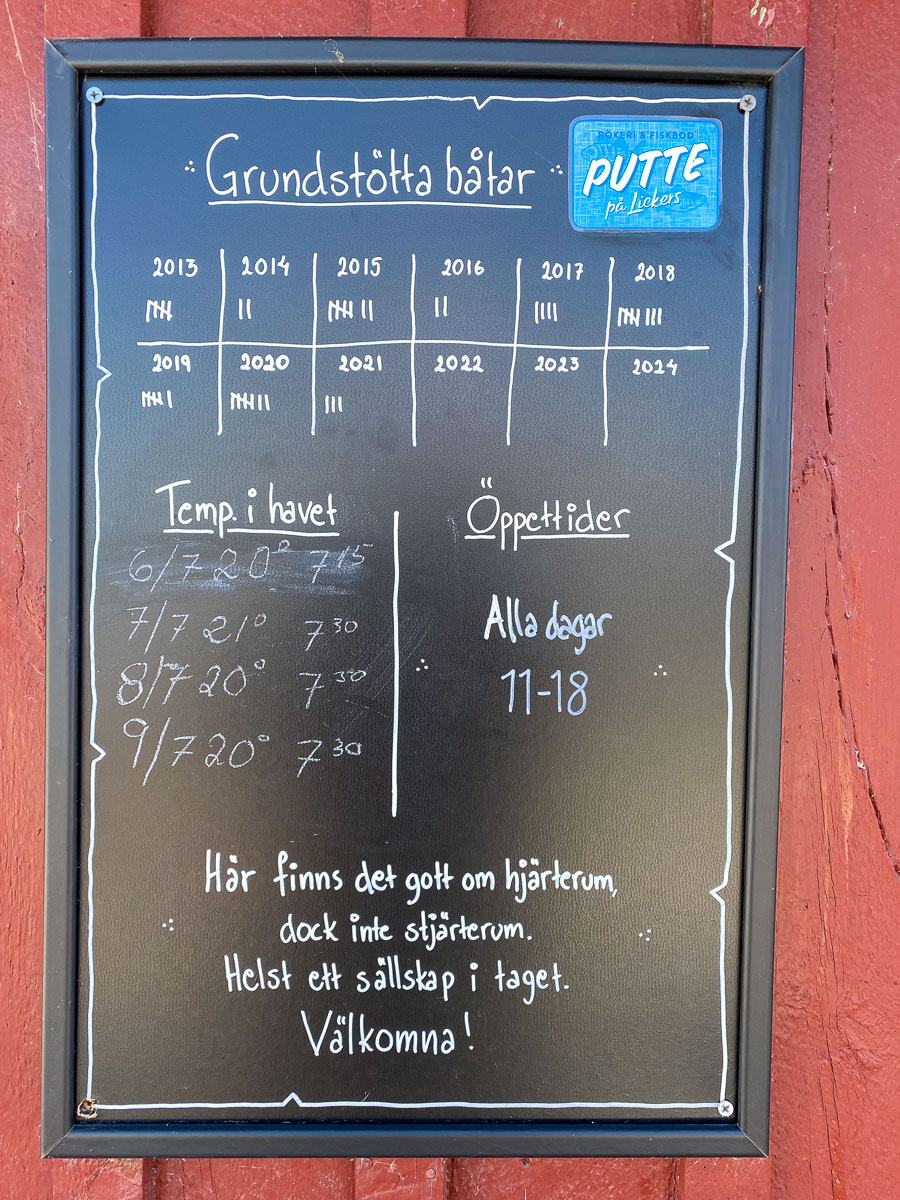 Grundstötta båtar
RÖKERI & FISKBOD
PUTTE
på Lickers
2013 2014 2015 2016 2017 2018
𝍸 || 𝍸 || || |||| 𝍸 |||
2019 2020 2021 2022 2023 2024
𝍸 | 𝍸 || |||
Temp. i havet
6/7 20° 7 15
7/7 21° 7 30
8/7 20° 7 30
9/7 20° 7 30
Öppettider
Alla dagar
11-18
Här finns det gott om hjärterum,
dock inte stjärterum.
Helst ett sällskap i taget.
Välkomna!